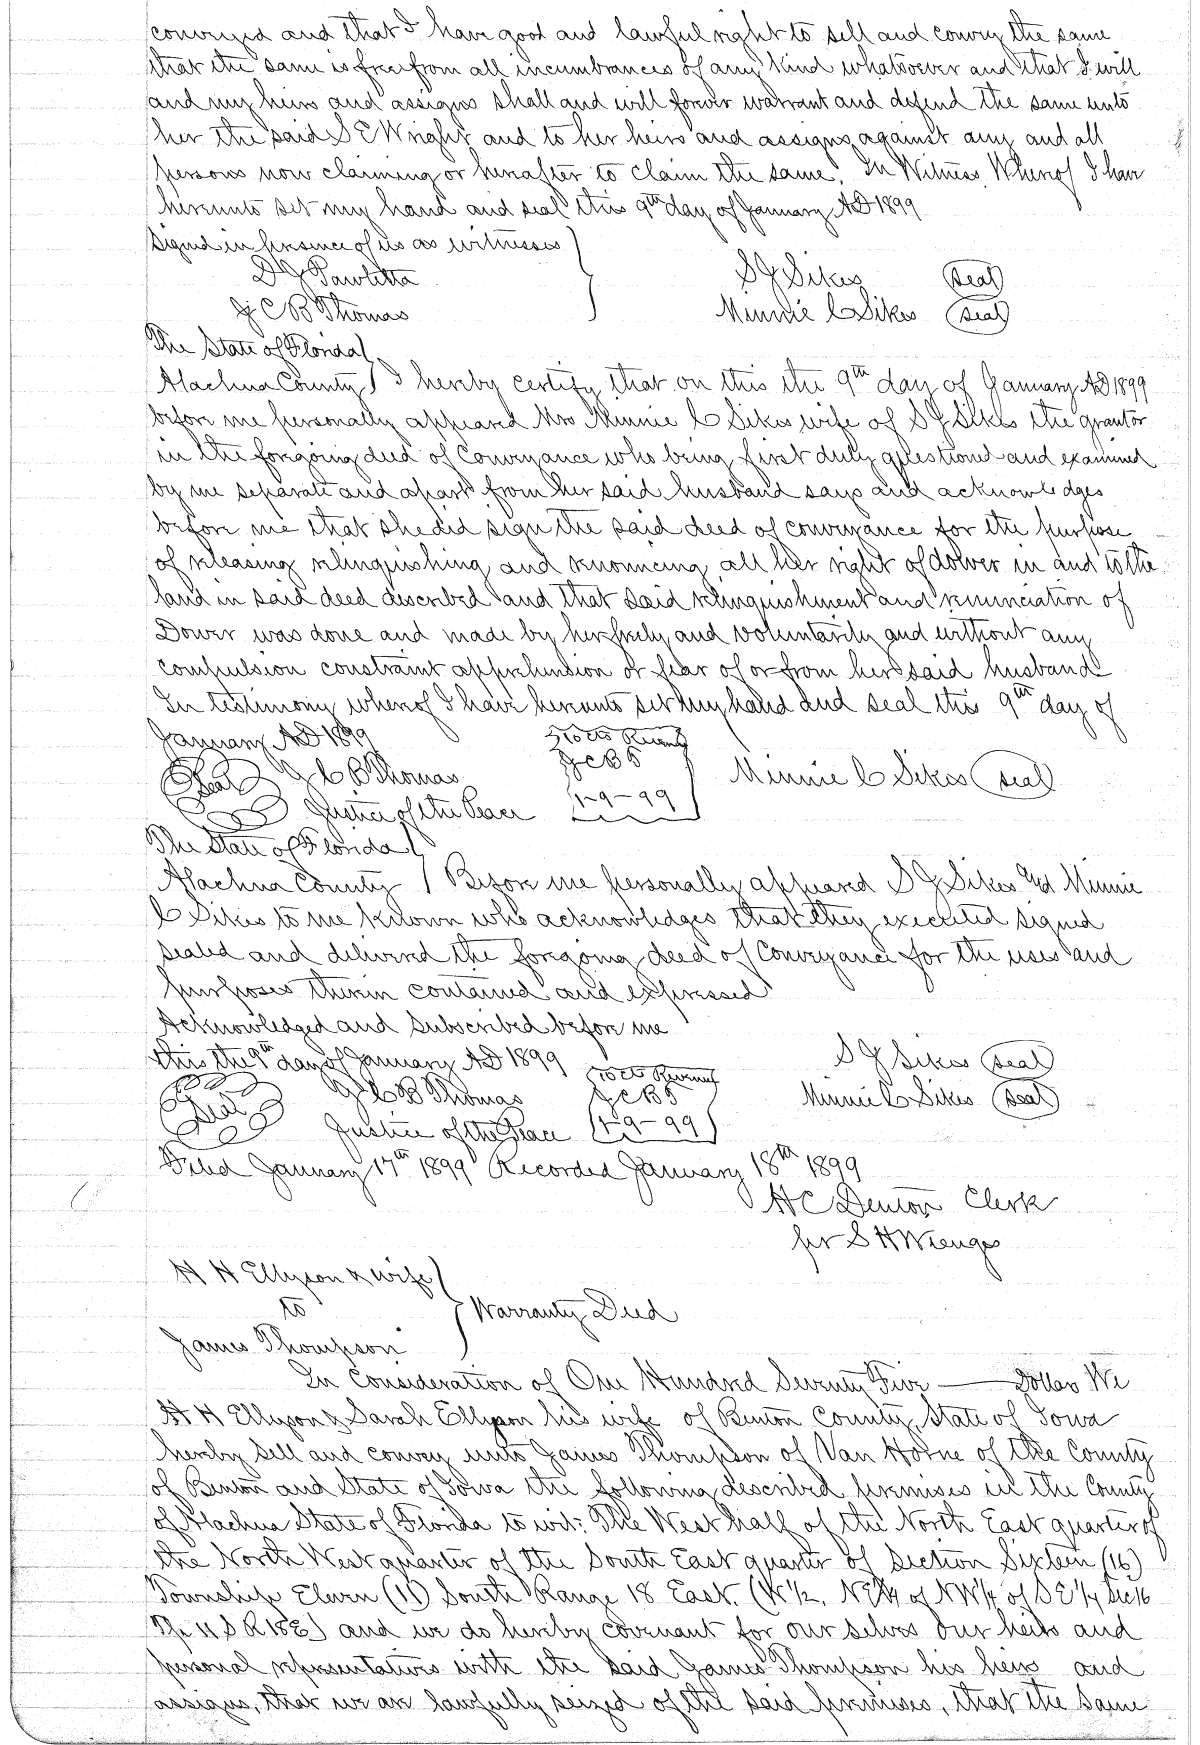 conveyed and that I have good and lawful right to sell and convey the same
that the same is free from all incumbrances of any kind whatsoever and that I will
and my heirs and assigns shall and will forever warrant and defend the same unto
her the said S E Wright and to her heirs and assigns against any and all
persons now claiming or hereafter to claim the same. In Witness Whereof I have
hereunto set my hand and seal this 9th day of January AD 1899
Signed in presence of us as witnesses
D J Pawletta S J Sikes (seal)
J C B Thomas Minnie C Sikes (seal)
The State of Florida
Alachua County I hereby certify that on this the 9th day of January AD 1899
before me personally appeared Mrs Minnie C Sikes wife of S J Sikes the grantor
in the foregoing deed of Conveyance who being first duly questioned and examined
by me separate and apart from her said husband says and acknowledges
before me that she did sign the said deed of conveyance for the purpose
of releasing relinquishing and renouncing all her right of dower in and to the
land in said deed described and that said relinquishment and renunciation of
Dower was done and made by her freely and voluntarily and without any
compulsion constraint apprehension or fear of or from her said husband
In testimony whereof I have hereunto set my hand and seal this 9th day of
January AD 1899 10 cts Revenue
Seal J C B Thomas J C B T Minnie C Sikes (seal)
Justice of the Peace 1-9-99
The State of Florida
Alachua County Before me personally appeared S J Sikes and Minnie
C Sikes to me known who acknowledges that they executed signed
sealed and delivered the foregoing deed of Conveyance for the uses and
purposes therein contained and expressed
Acknowledged and subscribed before me
this the 9th day of January AD 1899 10 cts Revenue S J Sikes (seal)
Seal J C B Thomas J C B T Minnie C Sikes (seal)
Justice of the Peace 1-9-99
Filed January 17th 1899 Recorded January 18th 1899
H C Denton Clerk
per S H Wienges
H H Ellyson & wife
to Warranty Deed
James Thompson
In Consideration of One Hundred Seventy Five —— Dollars We
H H Ellyson & Sarah Ellyson his wife of Benton County, State of Iowa
hereby sell and convey unto James Thompson of Van Horne of the County
of Benton and State of Iowa the following described premises in the County
of Alachua State of Florida to wit: The West half of the North East quarter of
the North West quarter of the South East quarter of Section Sixteen (16)
Township Eleven (11) South Range 18 East. (W 1/2, NE 1/4 of NW 1/4 of SE 1/4 Sec 16
Tp 11 S R 18 E) and we do hereby covenant for our selves our heirs and
personal representatives with the said James Thompson his heirs and
assigns, that we are lawfully seized of the said premises, that the same